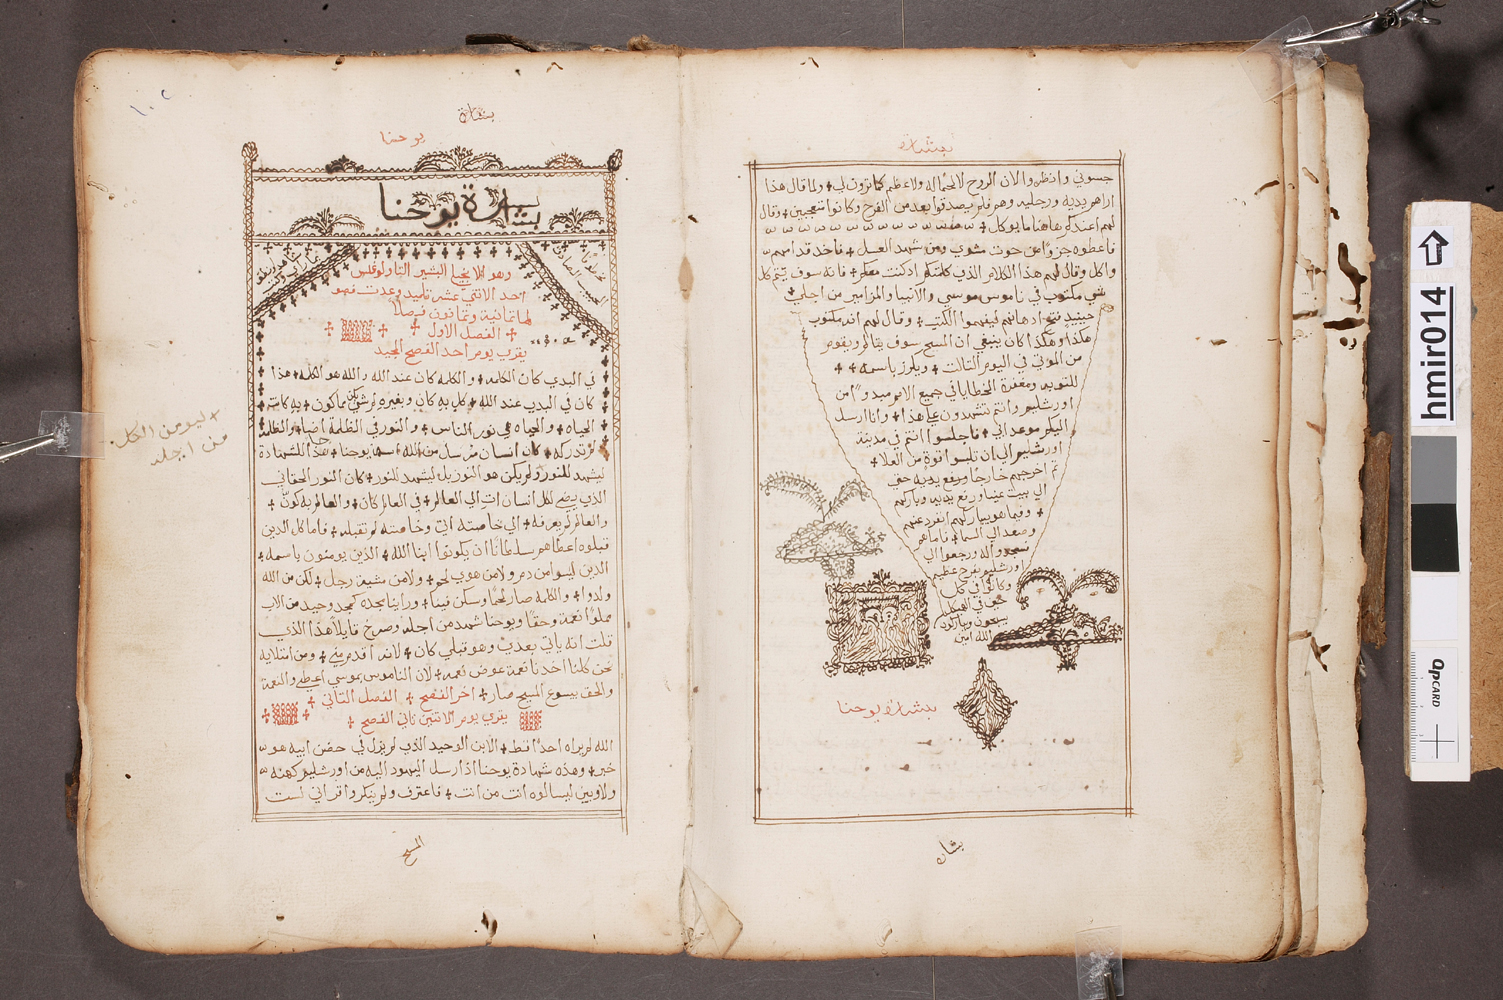 بشاره
جسوني وانظروا الان الروح لا لحم له ولا عظم كما ترون لي ولما قال هذا
اراهم يديه ورجليه وهم فلم يصدقوا بعد من الفرح وكانوا متعجبين وقال
لهم اعندكم هاهنا ما يوكل
فاعطوه جزوًا من حوت مشوي ومن شهد العسل فاخد قدامهم
واكل وقال لهم هذا الكلام الذي كلمتكم اد كنت معكم فانه سوف يتم كل
شي مكتوب في ناموس موسي والانبيا والمزامير من اجلي
حينيد فتح ادهانهم ليفهموا الكتب وقال لهم انه مكتوب
هكذا وهكذا كان ينبغي ان المسيح سوف يتالم ويقوم
من الموتي في اليوم التالت ويكرز باسمه
للتوبه ومغفرة الخطايا في جميع الامم ميدوًا من
اورشليم وانتم تشهدون علي هذا وانا ارسل
اليكم موعد ابي فاجلسوا انتم في مدينة
اورشليم الي ان تلبسوا قوة من العلا
تم اخرجهم خارجًا ورفع يديه حتي
الي بيت عنيا ورفع يديه وباركهم
وفيما هو يباركهم انفرد عنهم
وصعد الي السما فاما هم
سجدوا له ورجعوا الي
اورشليم بفرح عظيم
وكانوا في كل
حين في الهيكل
يسبحون ويباركون
الله امين
بشارة يوحنا
بشاره
بشارة
يوحنا
بشارة يوحنا
وهو الانجيلي البشير التاولوغس
احد الاتني عشر تلميد وعدت فصو
لها تمانية وتمانون فصلاً
الفصل الاول
يقري يوم احد الفصح المجيد
في البدي كان الكلمه والكلمه كان عند الله والله هو الكلمه هذا
كان في البدي عند الله كل به كان وبغيره لم يكن شي مما كون به كانت
الحياه والحياه هي نور الناس والنور في الظلمة اضا والظلمه
لم تدركه كان انسان مرسل من الله اسمه يوحنا هذا جا للشهادة
ليشهد للنور ولم يكن هو النور بل ليشهد للنور كان النور الحقاني
الذي يضي لكل انسان ات الي العالم في العالم كان والعالم به كون
والعالم لم يعرفه الي خاصته اتي وخاصته لم تقبله فاما كل الدين
قبلوه اعطاهم سلطانًا ان يكونوا ابنا الله الذين يومنون باسمه
الدين ليسوا من دم ولا من هوي لحم ولا من مشية رجل لكن من الله
ولدوا والكلمه صار لحمًا وسكن فينا وراينا مجده كمجد وحيد من الاب
مملوًا نعمة وحقًا ويوحنا شهد من اجله وصرخ قايلاً هذا الذي
قلت انه ياتي بعدي وهو قبلي كان لانه اقدم مني ومن امتلايه
نحن كلنا اخدنا نعمة عوض نعمه لان الناموس بموسي اعطي والنعمة
والحق بيسوع المسيح صار اخر الفصح الفصل التاني
يقري يوم الاتنين تاني الفصح
الله لم يراه احدًا قط الابن الوحيد الذي لم يزل في حضن ابيه هو
خبر وهذه شهادة يوحنا اذ ارسل اليهود اليه من اورشليم كهنه
ولاويين ليسالوه انت من انت فاعترف ولم ينكر واقر اني لست
المسيح
ليومن الكل
من اجله
hmir014
QPCARD